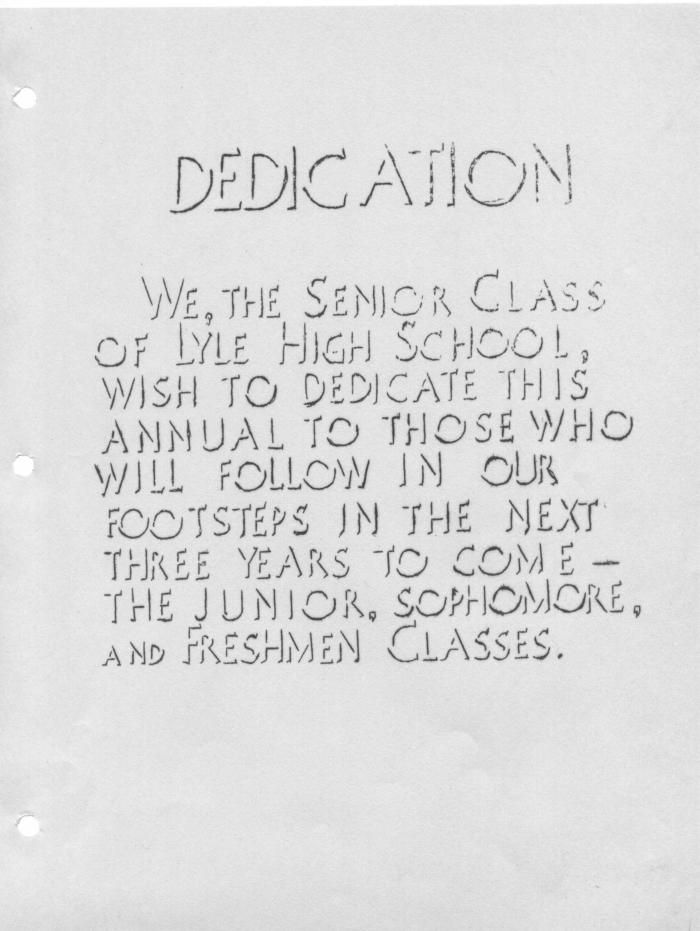 DEDICATION
WE, THE SENIOR CLASS
OF LYLE HIGH SCHOOL,
WISH TO DEDICATE THIS
ANNUAL TO THOSE WHO
WILL FOLLOW IN OUR
FOOTSTEPS IN THE NEXT
THREE YEARS TO COME –
THE JUNIOR, SOPHOMORE,
AND FRESHMEN CLASSES.